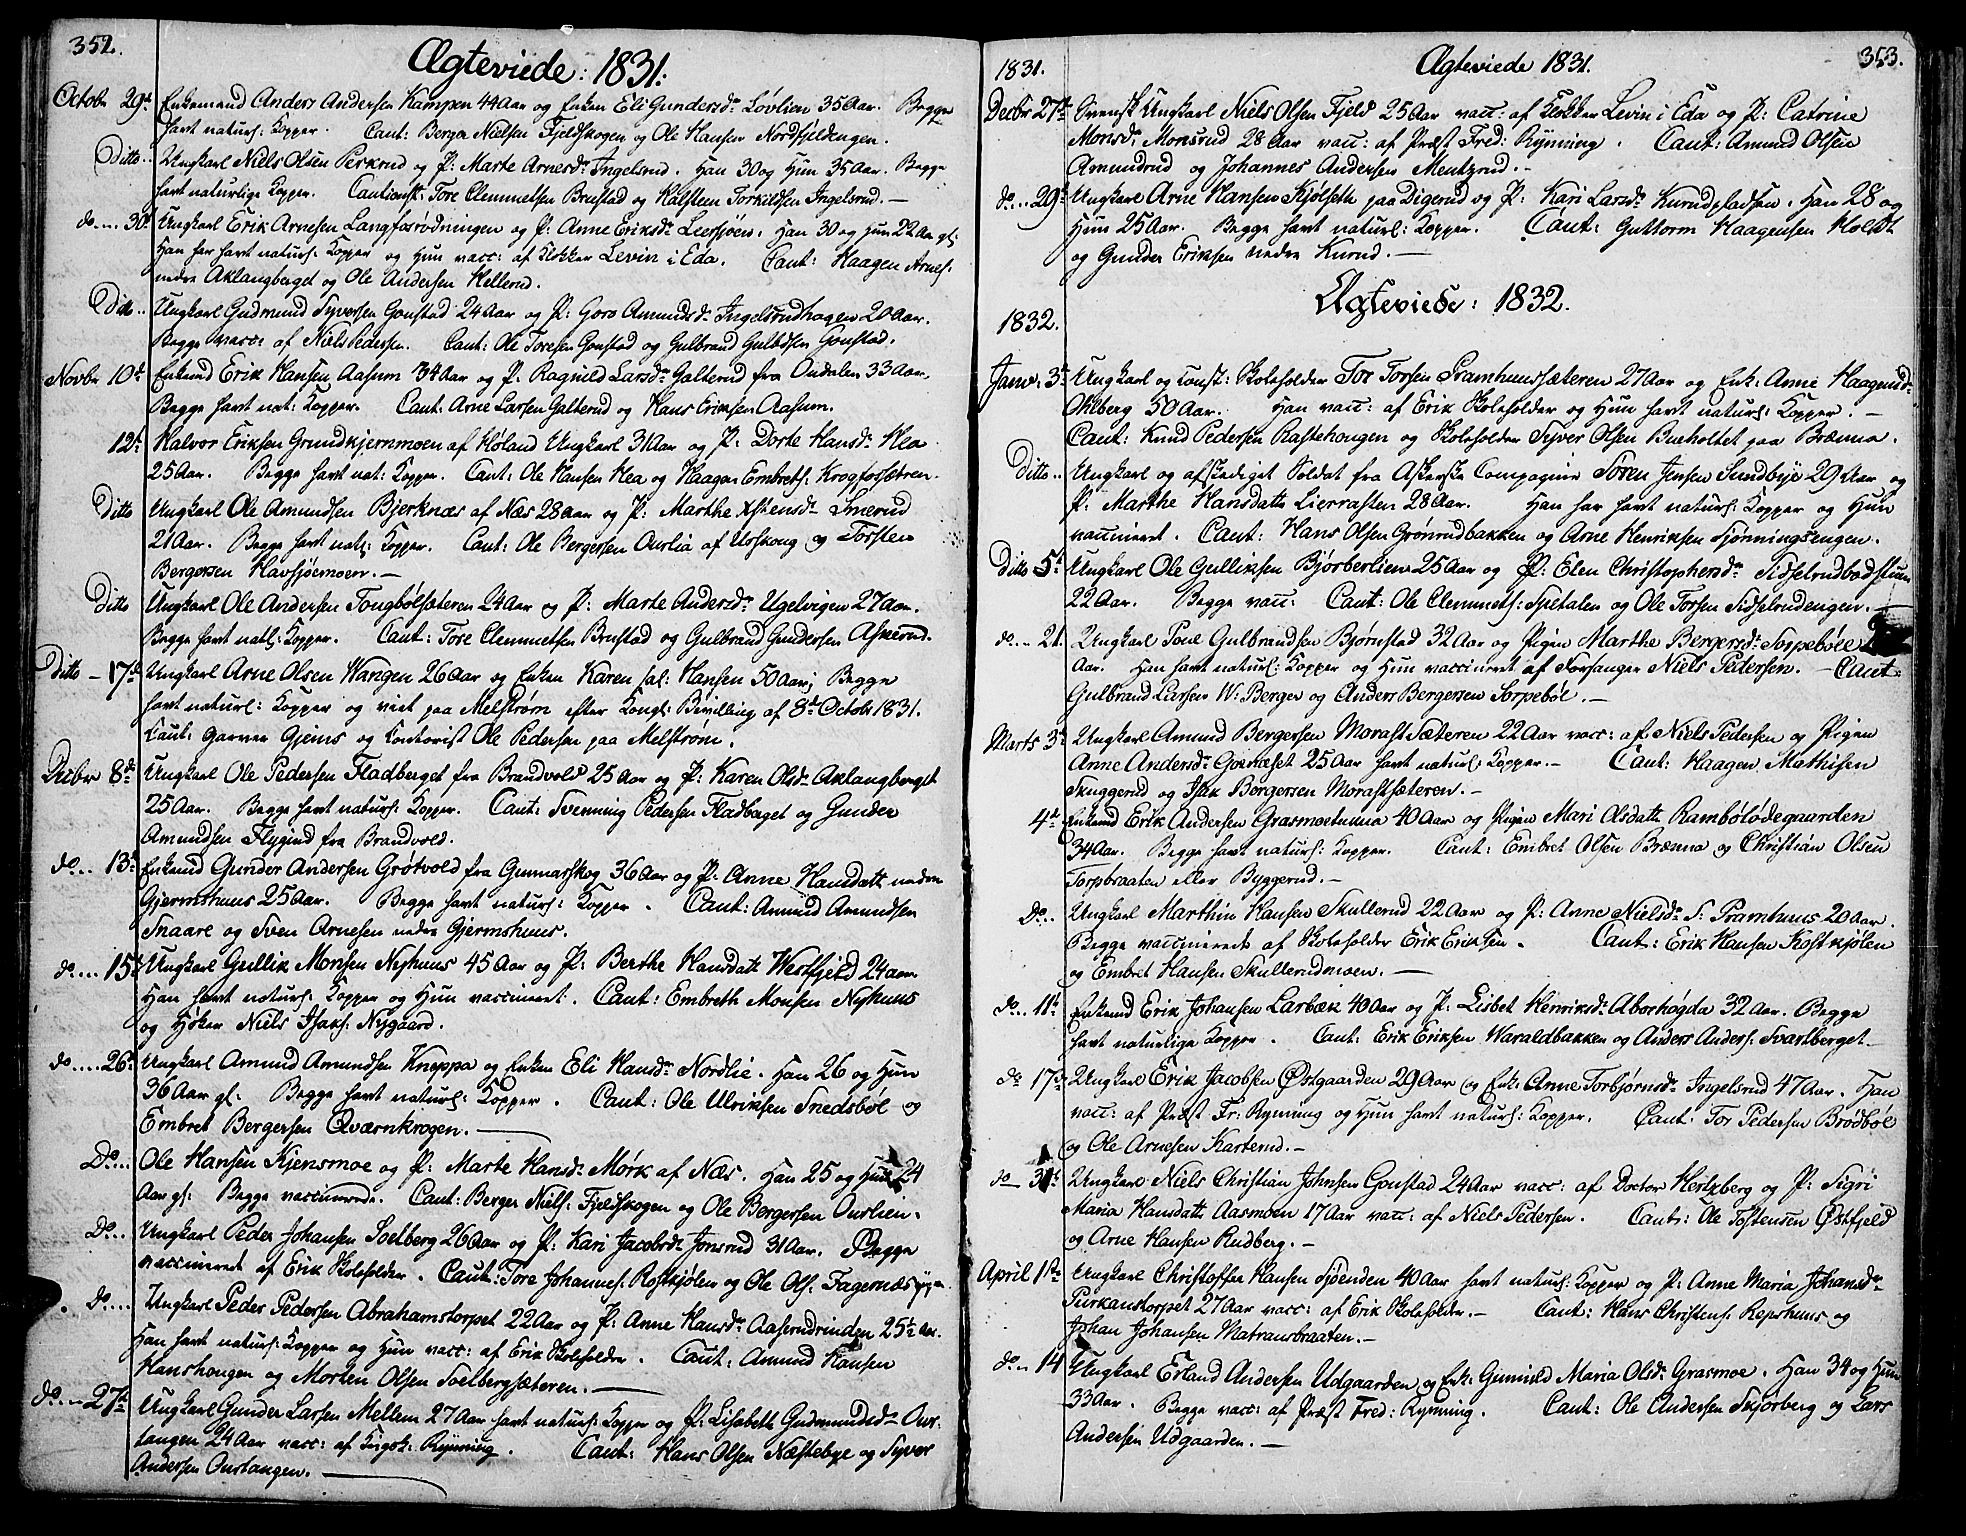 352.
Ægteviede: 1831:
Octobr 29de Enkemand Anders Andersen Kampen 44 Aar og Enken Eli Gundersdr Løvlien 35 Aar. Begge
havt naturl: Kopper. Caut: Berger Nielsen Fjeldskogen og Ole Hansen Nordfjeldengen.
Ditto.. Ungkarl Niels Olsen Perkrud og P: Marte Arnesdr Ingelsrud. Han 30 og Hun 35 Aar. Begge
havt naturlige Kopper. Cautionst: Tore Clemmetsen Brustad og Halsteen Torkildsen Ingelsrud.—
do.... 30. Ungkarl Erik Arnesen Langfosrødningen og P: Anne Eriksdr Leersjøen. Han 30 og Hun 22 Aar gl:
Han har havt naturl: Kopper og Hun vacc: af Klokker Levin i Eda. Caut: Haagen Arnes:
nedre Aklangberget og Ole Andersen Hellerud.
Ditto.. Ungkarl Gudmund Syversen Gonstad 24 Aar og P: Goro Amundsdr Ingelsrudhagen 20 Aar.
Begge vacc: af Niels Pedersen. Caut: Ole Toresen Gonstad og Gulbrand Gulbdsen Gonstad.
Novbr 10de Enkemd Erik Hansen Aasum 34 Aar og P: Ragnild Larsdr Galterud fra Oudalen 33 Aar.
Begge havt nat: Kopper. Caut: Arne Larsen Galterud og Hans Eriksen Aasum.
12te Halvor Eriksen Grundkjernmoen af Høland Ungkarl 31 Aar og P: Dorte Hansdr Hea
25 Aar. Begge havt nat: Kopper. Caut: Ole Hansen Hea og Haagen Embreths: Krogfossætren.
Ditto Ungkarl Ole Amundsen Bjerknæs af Næs 28 Aar og P: Marthe Astensdr Smerud
21 Aar. Begge havt natl: Kopper. Caut: Ole Bergersen Ourlia af Urskoug og Torsten
Bergersen Havsjøemoen.—
Ditto Ungkarl Ole Andersen Tougbølsæteren 24 Aar og P: Marte Andersdr Ugelvigen 27 Aar.
Begge havt natl: Kopper. Caut: Tore Clemmetsen Brustad og Gulbrand Gundersen Askerud.
Ditto — 17de Ungkarl Arne Olsen Wangen 26 Aar og Enken Karen sal: Hansen 50 Aar; Begge
havt naturl: Kopper og viet paa Melstrøm efter Kongl: Bevilling af 8de Octobr 1831.
Caut: Garver Gjems og Contorist Ole Pedersen paa Melstrøm.
Decbr 8de Ungkarl Ole Pedersen Fladberget fra Brandvold 25 Aar og P: Karen Olsdr Aklangberget
25 Aar. Begge havt naturl: Kopper. Caut: Svenning Pedersen Fladberget og Gunder
Amundsen Flygind fra Brandvold.
do.. 13de Enkemd Gunder Andersen Grøtvold fra Gunnarskog 36 Aar og P: Anne Hansdatt. nedre
Gjermshuus 25 Aar. Begge havt naturl: Kopper. Caut: Amund Amundsen
Snaare og Sven Arnesen nedre Gjermshuus.
do.... 15de Ungkarl Gullik Monsen Nyhuus 45 Aar og P: Berthe Hansdatt. Westfjeld 24 Aar.
Han havt naturl: Kopper og Hun vaccineret. Caut: Embreth Monsen Nyhuus
og Høker Niels Isaks: Nygaard.
do.....26de Ungkarl Amund Amundsen Kneppa og Enken Eli Hansdr Nordlie. Han 26 og Hun
36 Aar gl: Begge havt naturl: Kopper. Caut: Ole Ulriksen Snedsbøl og
Embret Bergersen Qværnkrogen.—
Do... Ole Hansen Kjensmoe og P: Marte Hansdr Mørk af Næs. Han 25 og Hun 24
Aar gl: Begge vaccinerede. Caut: Berger Niels: Fjeldskogen og Ole Bergersen Ourlien.
Do.. Ungkarl Peder Johansen Soelberg 26 Aar og P: Kari Jacobsdr Jonsrud 31 Aar. Begge
vaccineret af Erik Skoleholder. Caut: Tore Johannes: Rostkjølen og Ole Ols: Fagernæs
Do.... Ungkarl Peder Pedersen Abrahamstorpet 22 Aar og P: Anne Hansdr Aaserudrinden 25½ Aar.
Han havt naturl: Kopper og Hun vacc: af Erik Skoleholder. Caut: Amund Hansen
Hanshougen og Morten Olsen Soelbergsæteren.—
do...27de Ungkarl Gunder Larsen Mellem 27 Aar havt naturl: Kopper og P: Lisabeth Gudmundsdr Our-
tangen 24 Aar vacc: af Rynning. Caut: Hans Olsen Næstebye og Syver
Andersen Ourtangen.—
353.
Ægteviede 1831.
1831.
Decbr 27de Svensk Ungkarl Niels Olsen Fjeld 25 Aar vacc: af Klokker Levin i Eda og P: Catrine
Monsdr Monsrud 28 Aar vacc: af Præst Fred: Rynning. Caut: Amund Olsen
Amundrud og Johannes Andersen Mentzrud.—
do... 29de Ungkarl Arne Hansen Kjølseth paa Digerud og P: Kari Larsdr Kurudpladsen. Han 28 og
Hun 25 Aar. Begge havt naturl: Kopper. Caut: Guttorm Haagensen Holdt
og Gunder Eriksen nedre Kurud.—
Ægteviede: 1832.
1832.
Janv. 3de Ungkarl og const: Skoleholder Tor Torsen Pramhuussæteren 27 Aar og Enk: Anne Haagensdr
Ohlberg 50 Aar. Han vacc: af Erik Skoleholder og Hun havt naturl: Kopper.—
Caut: Knud Pedersen Rastehougen og Skoleholder Syver Olsen Bueholtet paa Brænna.
Ditto.. Ungkarl og afskediget Soldat fra Askerske Compagnie Søren Jensen Sundbye 29 Aar og
P: Marthe Hansdatter Lierrasten 28 Aar. Han har havt naturl: Kopper og Hun
vaccineret. Caut: Hans Olsen Grønrudbakken og Arne Henriksen Sjønningsengen.
Ditto 5te Ungkarl Ole Gulliksen Bjørberlien 25 Aar og P: Elen Christophersdr Sidselrudbadstuen
22 Aar. Begge vacc: Caut: Ole Clemmets: Spetalen og Ole Torsen Sidselrudengen.—
do... 21. Ungkarl Poul Gulbrandsen Bjørnstad 32 Aar og Pigen Marthe Bergersdr Sorpebøle
Aar. Han havt naturl: Kopper og Hun vaccineret af Forsanger Niels Pedersen.— Caut:
Gulbrand Larsen W: Berger og Anders Bergersen Sorpebøl.—
Marts 3de Ungkarl Amund Bergersen Morastsæteren 22 Aar vacc: af Niels Pedersen og Pigen
Anne Andersdr Goenæset 25 Aar havt naturl: Kopper.— Caut: Haagen Mathisen
Skuggerud og Isak Børgersen Morastsæteren.—
4de Enkemd Erik Andersen Grasmoetunna 40 Aar og Pigen Mari Olsdatt Rambølødegaarden
34 Aar. Begge havt naturl: Kopper. Caut: Embret Olsen Brænna og Christian Olsen
Torpbraaten eller Byggerud.—
Do.. Ungkarl Marthin Hansen Skullerud 22 Aar og P: Anne Nielsdr S: Pramhuus 20 Aar.
Begge vaccinerede af Skoleholder Erik Eriksen. Caut: Erik Hansen Kostkjølen
og Embret Hansen Skullerudmoen.—
do.. 11te Enkemd Erik Johansen Larbæk 40 Aar og P: Lisbet Henriksdr Aborhøgda 32 Aar. Begge
havt naturlige Kopper. Caut: Erik Eriksen Waraldbakken og Anders Anders: Svartberget.
do 17de Ungkarl Erik Jacobsen Østgaarden 29 Aar og Enk: Anne Torbjørnsdr Ingelsrud 47 Aar. Han
vacc: af Præst Fr: Rynning og Hun havt naturl: Kopper. Caut: Tor Pedersen Brødbøl
og Ole Arnesen Karterud.—
do— 31te Ungkarl Niels Christian Johnsen Gonstad 24 Aar vacc: af Doctor Hertzberg og P: Sigri
Maria Hansdatt. Aasmoen 17 Aar vacc: af Niels Pedersen. Caut: Ole Tostensen Østfjeld
og Arne Hansen Rudberg.—
April 1ste Ungkarl Christoffer Hansen Sjøenden 40 Aar havt naturl: Kopper og P: Anne Maria Johansdr
Purkanstorpet 27 Aar vacc: af Erik Skoleholder.— Caut: Hans Christens: Repshuus og
Johan Johansen Matransbraaten.—
do.. 14 Ungkarl Erland Andersen Udgaarden og Enk: Gunnild Maria Olsdr Grasmoe. Han 34 og Hun
33 Aar. Begge vacc: af Præst Fred: Rynning. Caut: Ole Andersen Skjørberg og Lars
Andersen Udgaarden.—